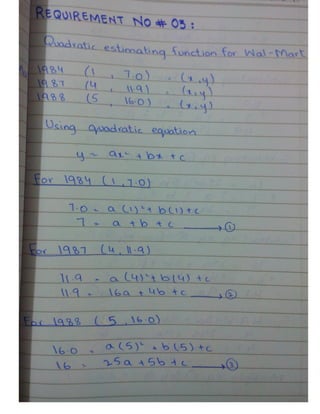 REQUIREMENT NO # 03 :
Quadratic estimating function for Wal-Mart
1984 (1 , 7.0) = (x,y)
1987 (4 , 11.9) = (x,y)
1988 (5 , 16.0) = (x,y)
Using quadratic equation
y = ax² + bx + c
For 1984 (1, 7.0)
7.0 = a (1)² + b(1) + c
7 = a + b + c ①
For 1987 (4, 11.9)
11.9 = a (4)² + b(4) + c
11.9 = 16a + 4b + c ②
For 1988 (5, 16.0)
16.0 = a(5)² + b(5) + c
16 = 25a + 5b + c ③